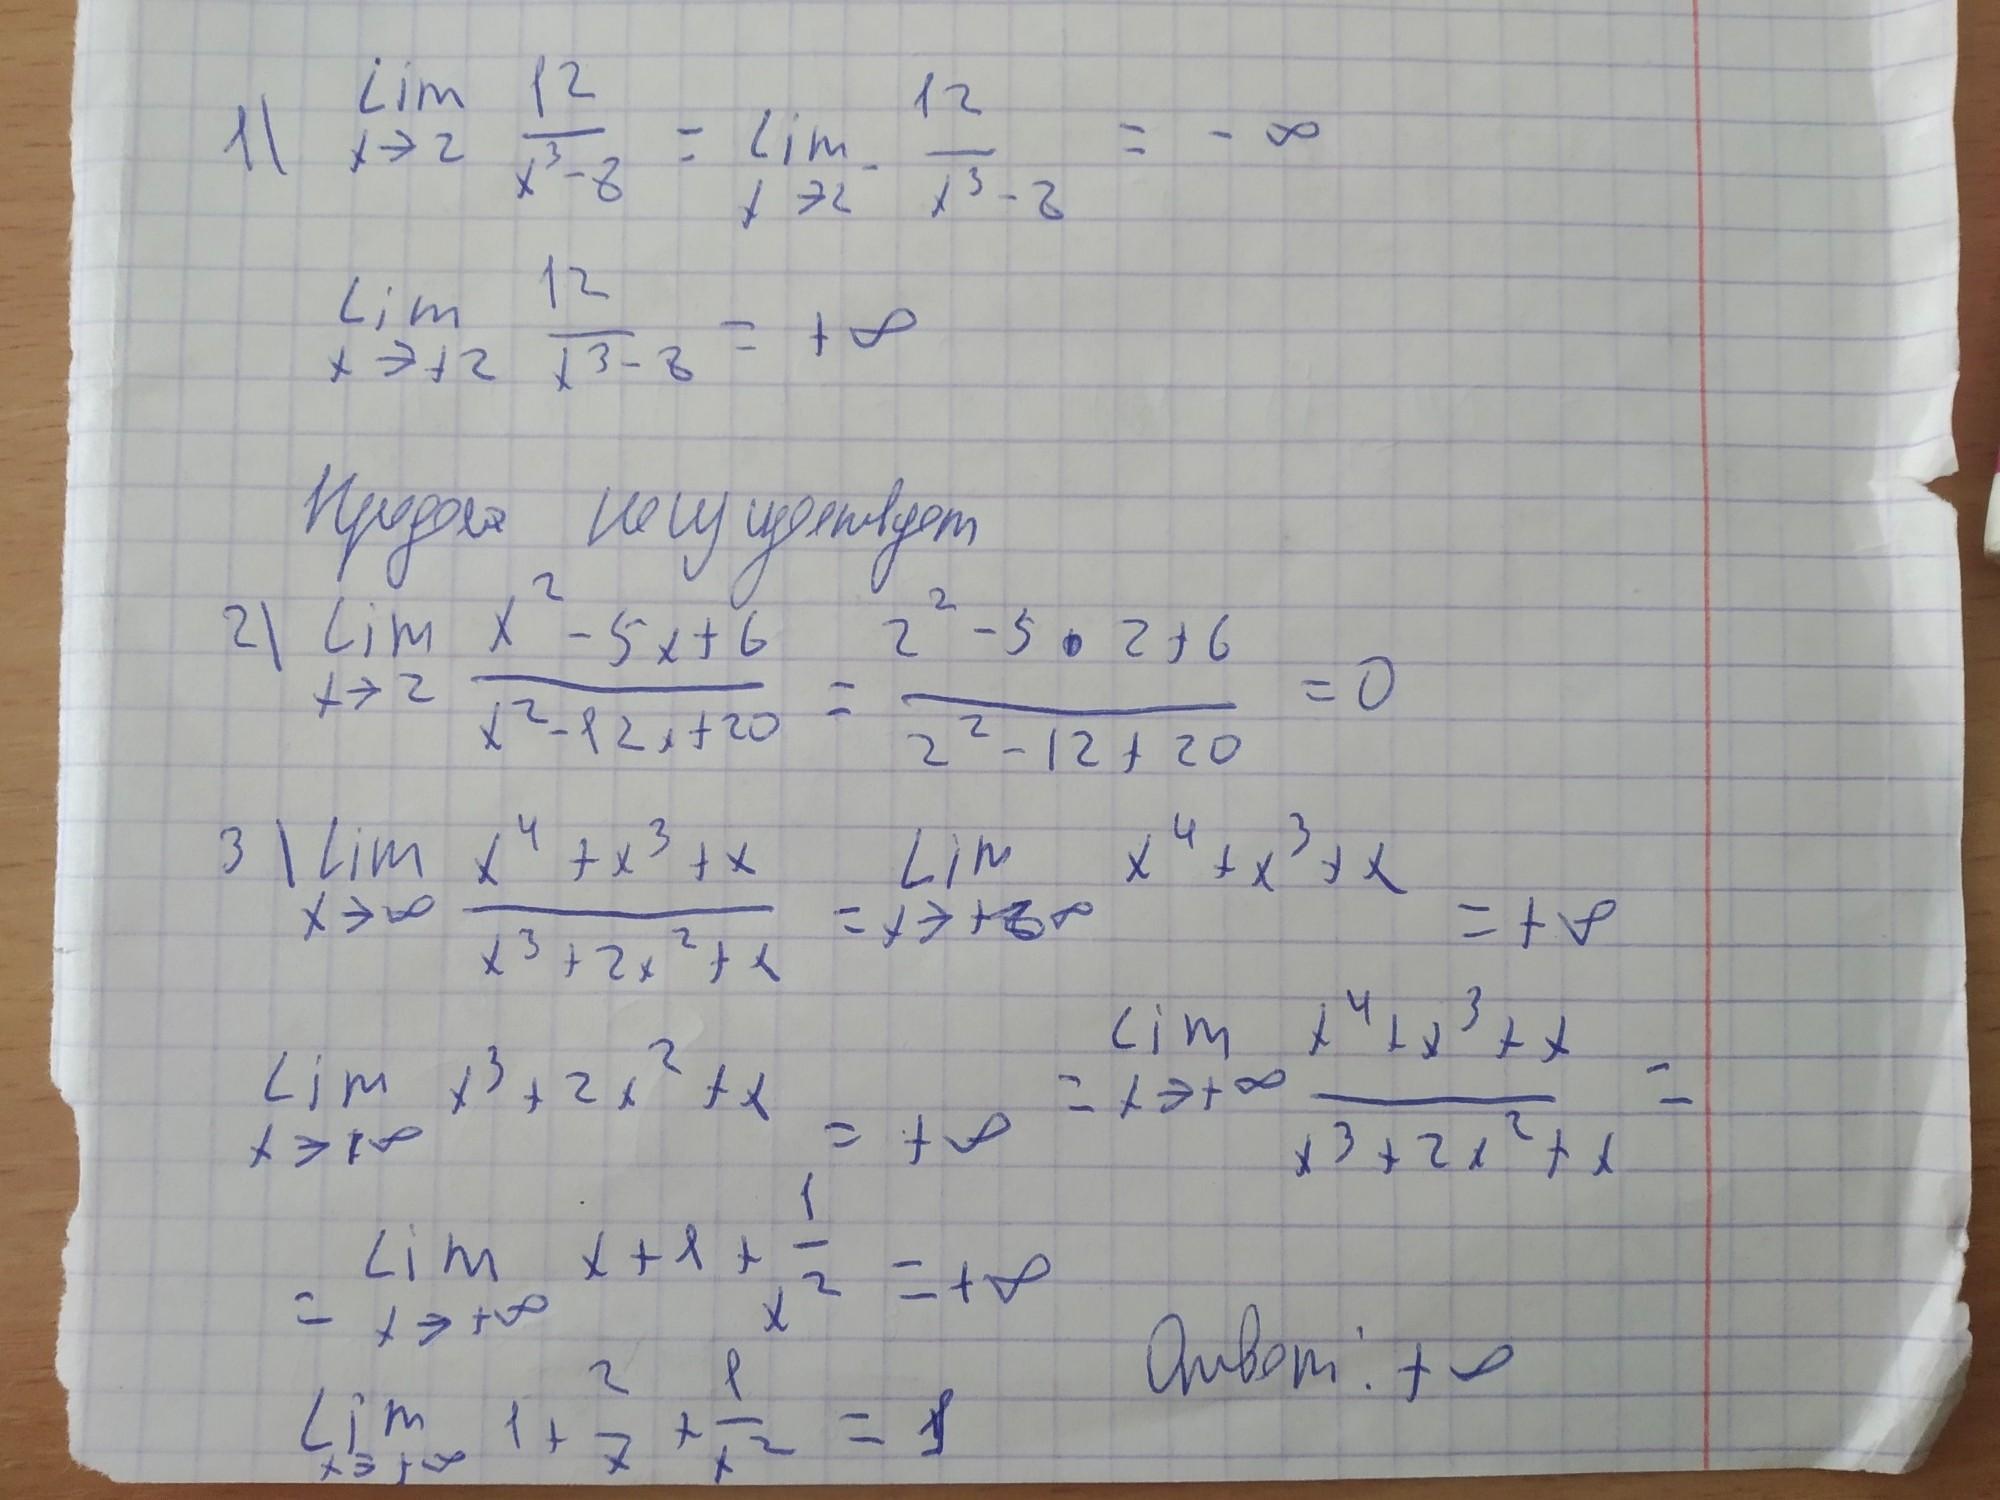 1) Lim x→2 12/(x³-8) = Lim x→2⁻ 12/(x³-8) = -∞
Lim x→+2 12/(x³-8) = +∞
Предел не существует
2) Lim x→2 (x²-5x+6)/(x²-12x+20) = (2²-5•2+6)/(2²-12+20) = 0
3) Lim x→∞ (x⁴+x³+x)/(x³+2x²+x) = Lim x→+∞ x⁴+x³+x = +∞
Lim x→+∞ x³+2x²+x = +∞ = Lim x→+∞ (x⁴+x³+x)/(x³+2x²+x) =
= Lim x→+∞ x+1+1/x² = +∞
Lim x→+∞ 1+2/x+1/x² = 1
Ответ: +∞